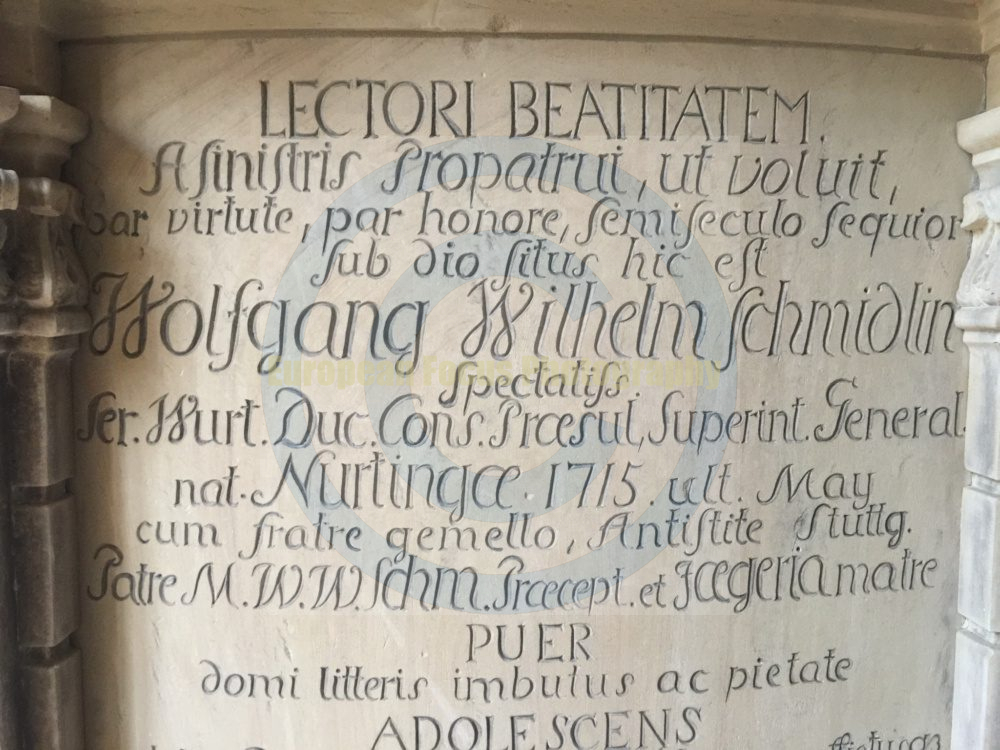 LECTORI BEATITATEM.
A siniſtris Propatrui, ut voluit,
par virtute, par honore, ſemiſeculo ſequior
ſub dio ſitus hic eſt
Wolfgang Wilhelm Schmidlin
Spectatiſs.
Ser. Wurt. Duc. Conſ. Præsul, Superint. General.
nat. Nurtingæ. 1715. ult. May
cum fratre gemello, Antiſtite Stuttg.
Patre M. W. W. Schm. Præcept. et Jægeria matre
PUER
domi litteris imbutus ac pietate
ADOLESCENS
European Focus Photography